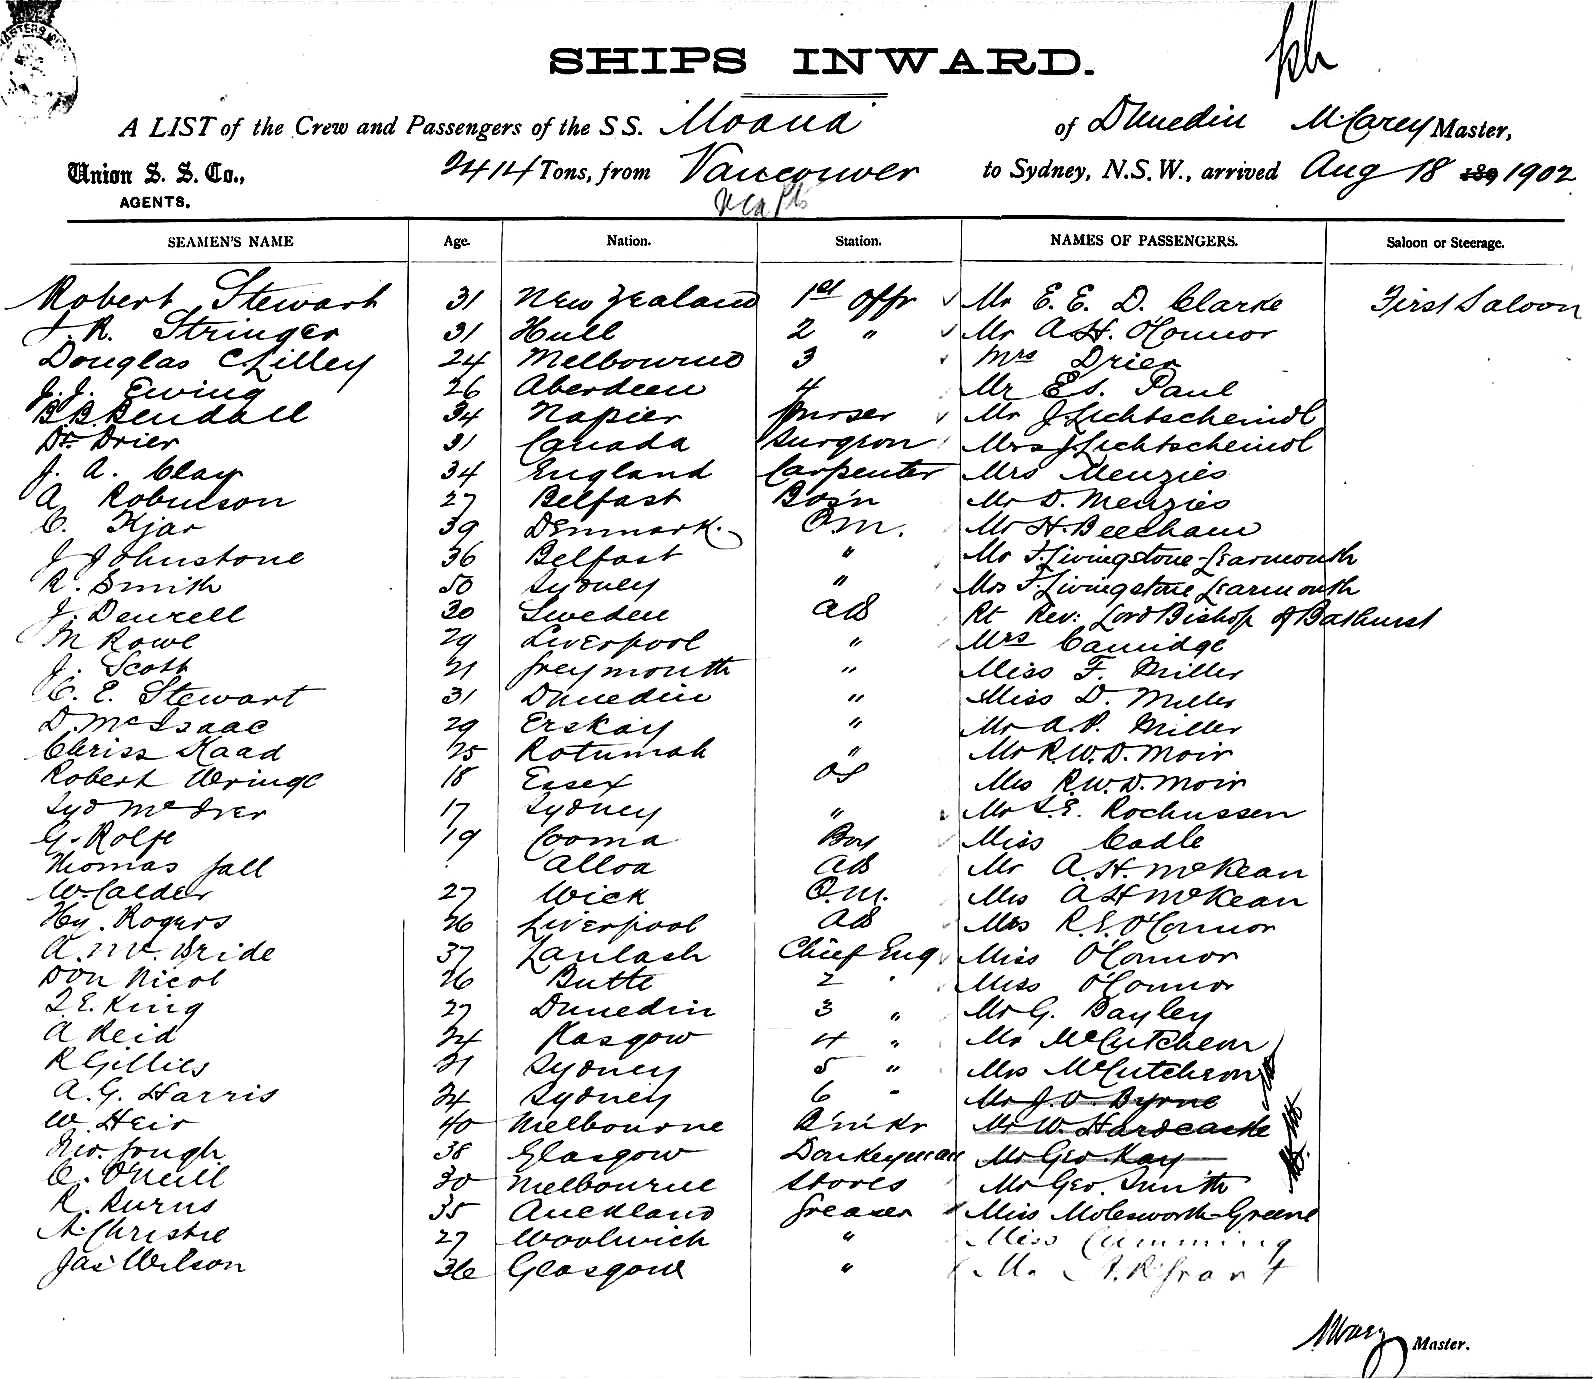 SHIPS INWARD.
A LIST of the Crew and Passengers of the SS. Moana of Dunedin M. Carey Master,
Union S. S. Co., 2414 Tons, from Vancouver to Sydney, N.S.W., arrived Aug 18 189 1902
AGENTS.
SEAMEN'S NAME Age. Nation. Station. NAMES OF PASSENGERS. Saloon or Steerage.
Robert Stewart 31 New Zealand 1st Offr Mr E. E. D. Clarke First Saloon
J. R. Stringer 31 Hull 2 " Mr A H. O'Connor
Douglas C Lilley 24 Melbourne 3 Mrs Drier
J. J. Ewing 26 Aberdeen 4 Mr E S. Paul
B B Bendall 34 Napier Purser Mr J Lichtscheindl
Dr. Drier 31 Canada Surgeon Mrs J. Lichtscheindl
J. A. Clay 34 England Carpenter Mrs Menzies
A Robinson 27 Belfast Bos'n Mr D. Menzies
C. Kjar 39 Denmark. Q.M. Mr H. Beecham
J Johnstone 36 Belfast " Mr F. Livingstone-Learmonth
R. Smith 50 Sydney " Mrs F. Livingstone Learmonth
J. Denrell 30 Sweden AB Rt Rev: Lord Bishop of Bathurst
M Rowe 29 Liverpool " Mrs Camidge
J. Scott 21 Greymouth " Miss F. Miller
C. E. Stewart 31 Dunedin " Miss D. Miller
D. McIsaac 29 Erskay " Mr A. P. Miller
Chriss Kaad 25 Rotumah " Mr R. W. D. Moir
Robert Wringe 18 Essex OS Mrs R. W. D. Moir
Syd McIver 17 Sydney " Mr S. E. Rochussen
G. Rolfe 19 Cooma Boy Miss Cadle
Thomas Gall Alloa AB Mr A. H. McKean
W. Calder 27 Wick Q.M. Mrs A H McKean
Hy. Rogers 26 Liverpool AB Mrs R. E. O'Connor
A. McBride 37 Chief Eng Miss O'Connor
Don Nicol 26 Butte 2 " Miss O'Connor
J. E. King 27 Dunedin 3 " Mr G. Bayley
A Reid 24 Glasgow 4 " Mr McCutcheon
R Gillies 21 Sydney 5 " Mrs McCutcheon
A. G. Harris 24 Sydney 6 " Mr J. O. Byrne
W. Heir 40 Melbourne Mr W. Hardcastle
Gough 38 Glasgow Donkeyman Mr Geo Kay
C. O'Neill 30 Melbourne Stores Mr Geo. Smith
R. Burns 35 Auckland Greaser Miss Molesworth-Greene
A. Christie 27 Woolwich " Miss Cumming
Jas Wilson 36 Glasgow " Mr A. R. Grant
Master.